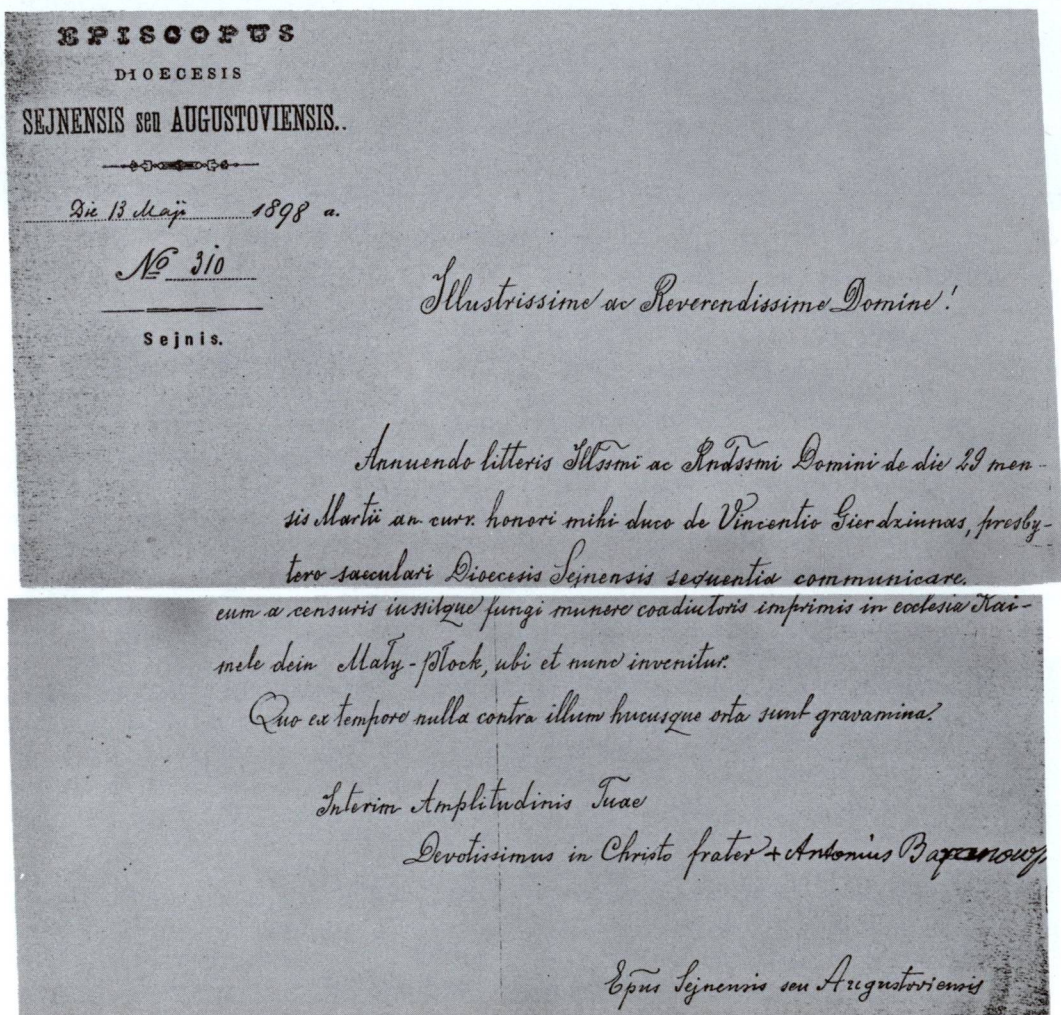 EPISCOPUS
DIOECESIS
SEJNENSIS seu AUGUSTOVIENSIS..
Die 13 Maji 1898 a.
No 310
Sejnis.
Illustrissime ac Reverendissime Domine!
Annuendo litteris Illssmi ac Rndssmi Domini de die 29 men-
sis Martii an curr. honori mihi duco de Vincentio Gierdziunas, presby-
tero saeculari Dioecesis Sejnensis sequentia communicare.
eum a censuris iussitque fungi munere coadiutoris imprimis in ecclesia Kai-
mele dein Mały-Płock, ubi et nunc invenitur.
Quo ex tempore nulla contra illum hucusque orta sunt gravamina.
Interim Amplitudinis Tuae
Devotissimus in Christo frater + Antonius
Epus Sejnensis seu Augustoviensis